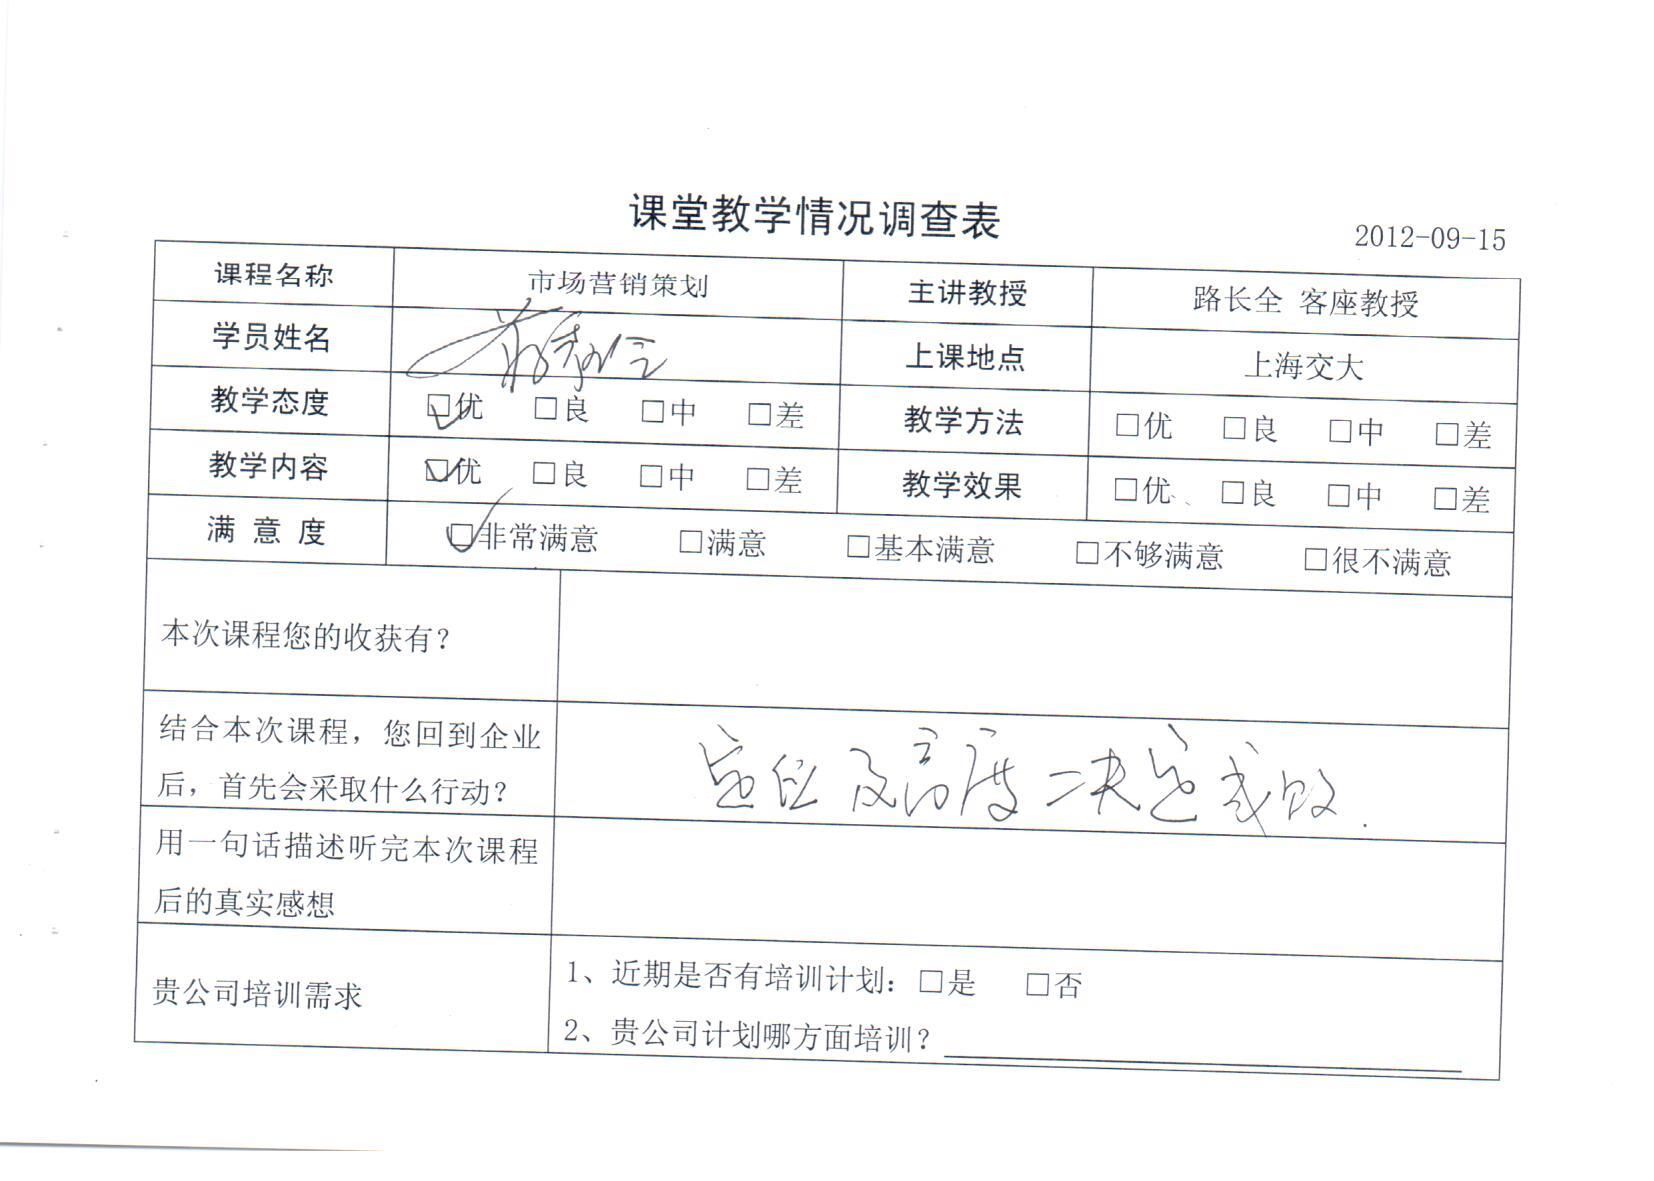 课堂教学情况调查表
2012-09-15
课程名称 市场营销策划 主讲教授 路长全 客座教授
学员姓名 上课地点 上海交大
教学态度 ☑优 □良 □中 □差 教学方法 □优 □良 □中 □差
教学内容 ☑优 □良 □中 □差 教学效果 □优 □良 □中 □差
满 意 度 ☑非常满意 □满意 □基本满意 □不够满意 □很不满意
本次课程您的收获有？
结合本次课程，您回到企业
后，首先会采取什么行动？
定位及高度 决定成败.
用一句话描述听完本次课程
后的真实感想
贵公司培训需求
1、近期是否有培训计划：□是 □否
2、贵公司计划哪方面培训？